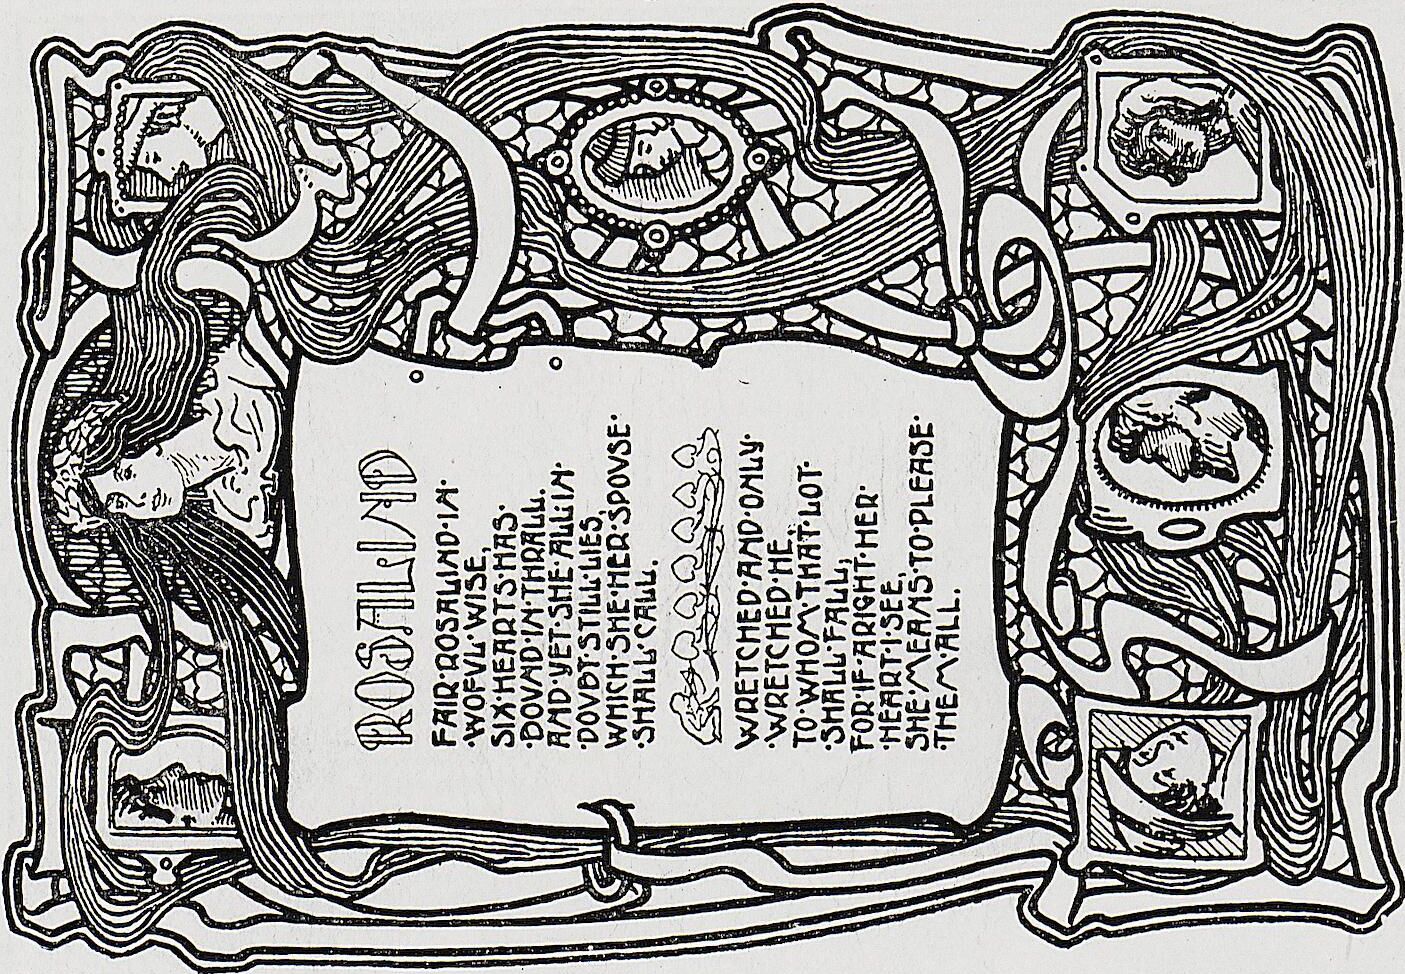 ROSALIND
FAIR·ROSALIND·IN·
·WOFVL·WISE,
SIX·HEARTS·HAS·
·BOVND·IN·THRALL.
AND·YET·SHE·ALL·IN·
·DOVBT·STILL·LIES,
WHICH·SHE·HER·SPOVSE·
·SHALL·CALL.
WRETCHED·AND·ONLY·
·WRETCHED·HE,
TO·WHOM·THAT·LOT·
·SHALL·FALL;
FOR·IF·ARIGHT·HER·
·HEART·I·SEE,
SHE·MEANS·TO·PLEASE·
·THEM·ALL.